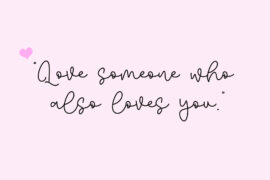 "Love someone who
also loves you."